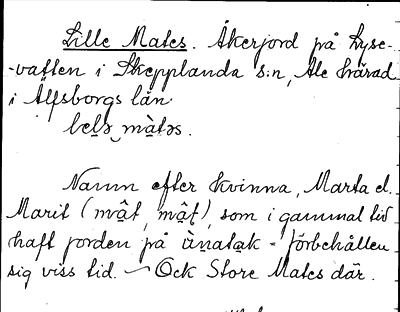 Lille Mates. Åkerjord på Lyse-
-vatten i Skepplanda s:n, Ale härad
i Älfsborgs län.
Namn efter kvinna, Marta el.
Marit (mv̂a̱t, mâ̱t), som i gammal tid
haft jorden på ùṉata̱k = förbehållen
sig viss tid. – Ock Store Mates där.